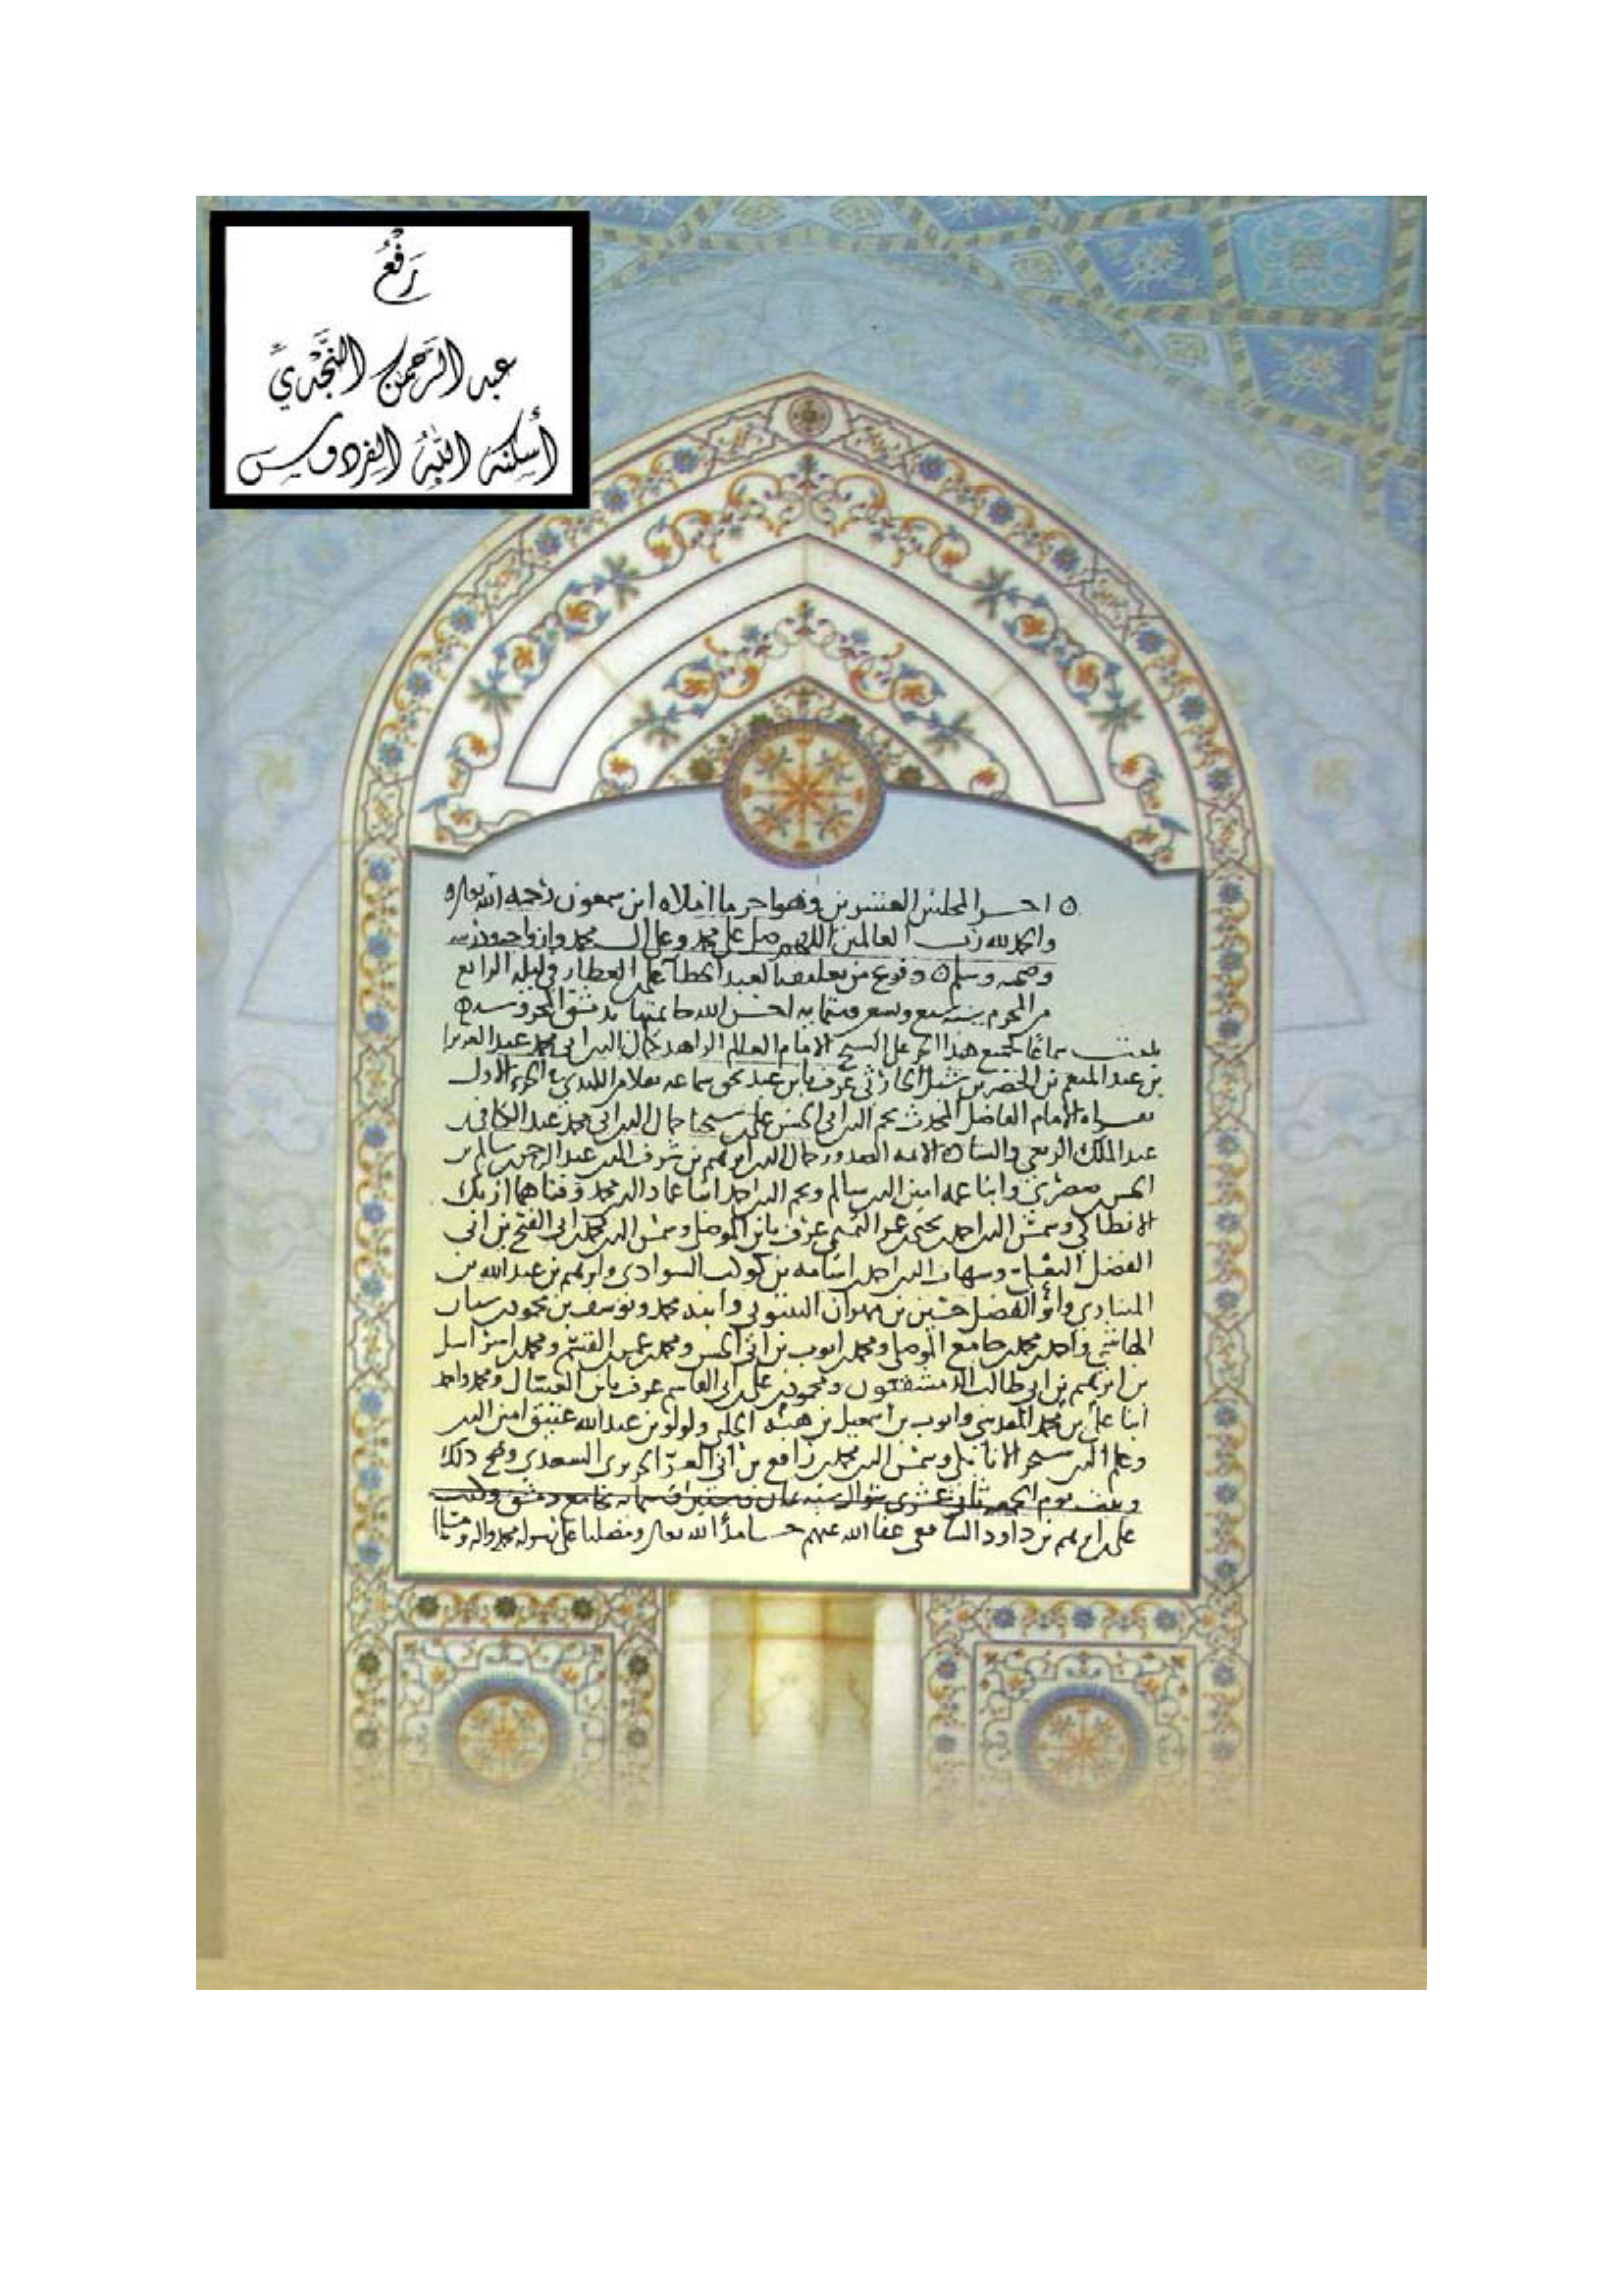 رَفْعُ
عبد الرَّحمن النَّجْديِّ
أَسكنه اللهُ الفردوس
احـر المجلس العشرين وهو احر ما املاه ابن سمعون رحمه الله تعالى
والحمد لله رب العالمين اللهم صل على محمد وعلى ال محمد وازواجه وذريته
وصحبه وسلم وفرع من تعليقه العبد على العطار في ليلة الرابع
من المحرم سنة سبع وتسعين احسن الله خاتمتها بدمشق المحروسة
بلغت سماعا لجميع هذا على الشيخ الامام العالم الزاهد كمال الدين ابي محمد عبد العزيز
بن عبد المنعم بن الخضر بن شبل الحارثي عرف بابن عبد بحق سماعه الجزء الاول
الامام الفاضل المحدث نجم الدين ابي الحسن على بن شيخنا جمال الدين ابي محمد عبد الكافي بن
عبد الملك الربعي والسادة الائمة الصدور جمال الدين ابرهيم بن شرف الدين عبد الرحمن بن سالم بن
الحسن صصرى وابنا عمه امين الدين سالم ونجم الدين احمد ابنا عماد الدين محمد وفتاهما ازبك
الانطاكي وشمس الدين احمد بن يحيى عرف بابن الموصلي وشمس الدين محمد بن ابي الفتح بن ابي
الفضل وشهاب الدين احمد بن اسامة بن كوكب السوادي وابرهيم بن عبد الله بن
المنادي وابو الفضل حسين بن مهران وابنه محمد ويوسف بن محمود بن
الهاشمي واحمد بن محمد بن جامع الموصلي ومحمد بن ايوب بن ابي الحسن ومحمد بن ومحمد بن اسرائيل
بن ابرهيم بن ابي طالب الدمشقيون ومحمود بن على بن ابي القاسم عرف بابن الغسال ومحمد واحمد
ابنا على بن محمد المقدسي وايوب بن اسمعيل بن هبة الحلبي ولولو بن عبد الله عتيق امين الدين
وعلم الدين سنجر وشمس الدين محمد بن رافع بن ابي العز السعدي وصح ذلك
وثبت يوم الجمعة ثاني عشري شوال سنة ثمان وستين وستمائة بجامع دمشق وكتب
على بن ابرهيم بن داود الشافعي عفا الله عنهم حامدا لله تعالى ومصليا على رسوله محمد واله